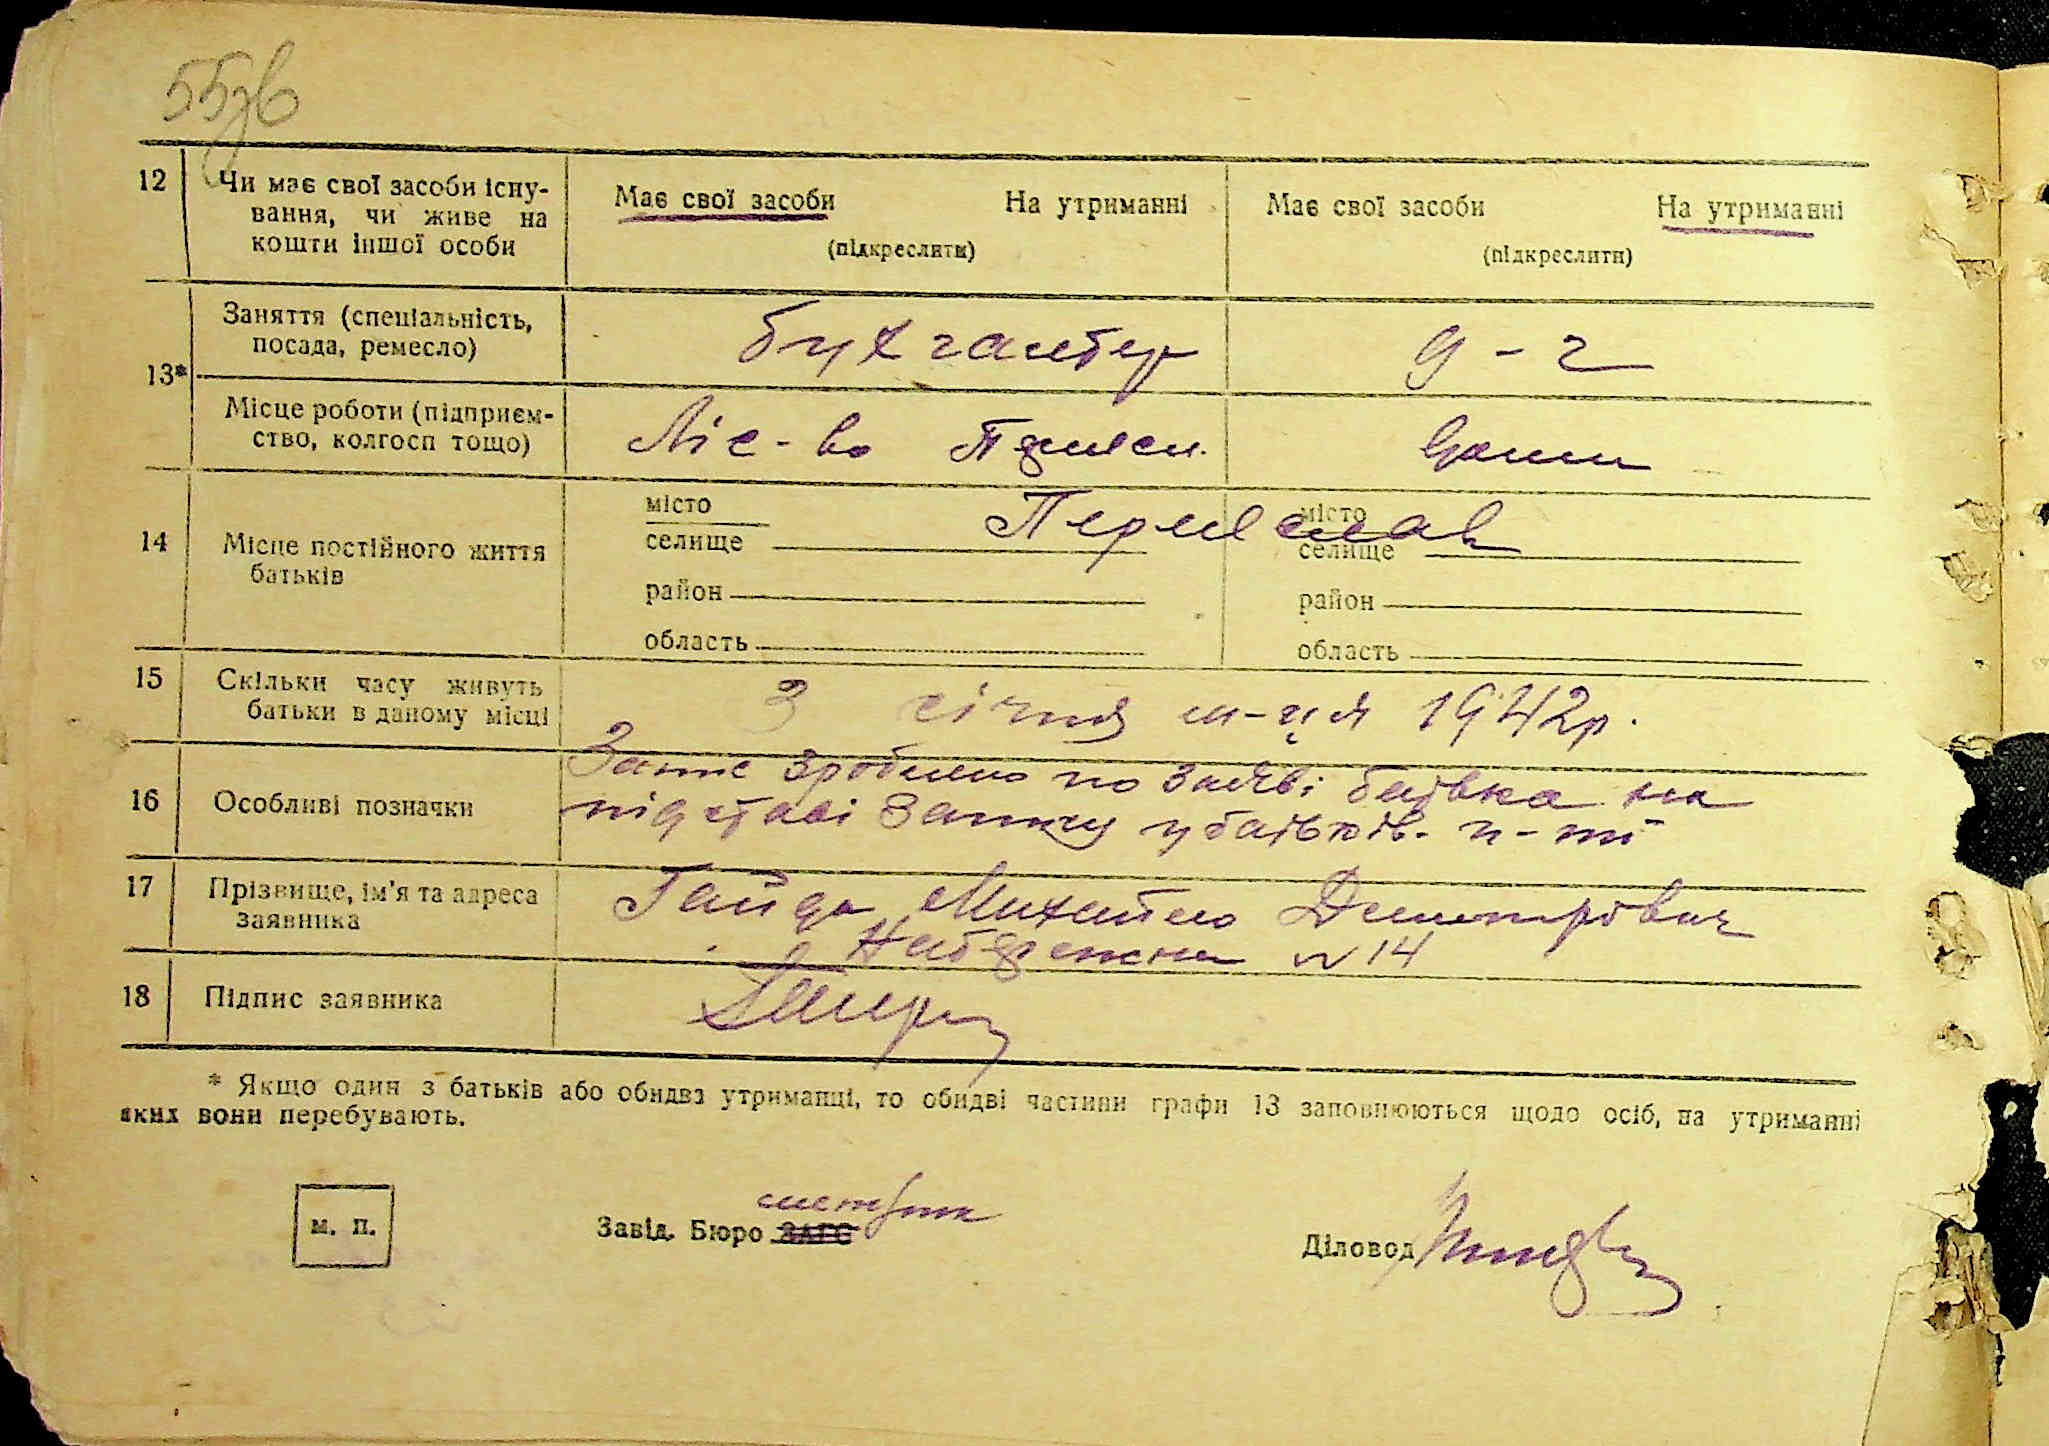 12 Чи має свої засоби існу-
вання, чи живе на
кошти іншої особи
Має свої засоби На утриманні
(підкреслити)
Має свої засоби На утриманні
(підкреслити)
13*
Заняття (спеціальність,
посада, ремесло)
бухгалтер
д-г
Місце роботи (підприєм-
ство, колгосп тощо)
Ліс-во
14 Місце постійного життя
батьків
місто
селище
район
область
місто
селище
район
область
Переяслав
15 Скільки часу живуть
батьки в даному місці
З січня м-ця 1942р.
16 Особливі позначки
Запис зроблено по заяві батька на
підставі запису у батьків. п-ті
17 Прізвище, ім'я та адреса
заявника
Гайда Михайло Дмитрович
Набережна N 14
18 Підпис заявника
* Якщо один з батьків або обидва утриманці, то обидві частини графи 13 заповнюються щодо осіб, на утриманні
яких вони перебувають.
м. п.
метрик
Завід. Бюро ЗАГС
Діловод